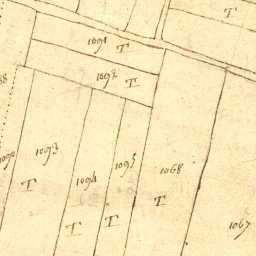 T
1091 T
1092 T
1093
T
1094
T
1095
T
1068
T
1067